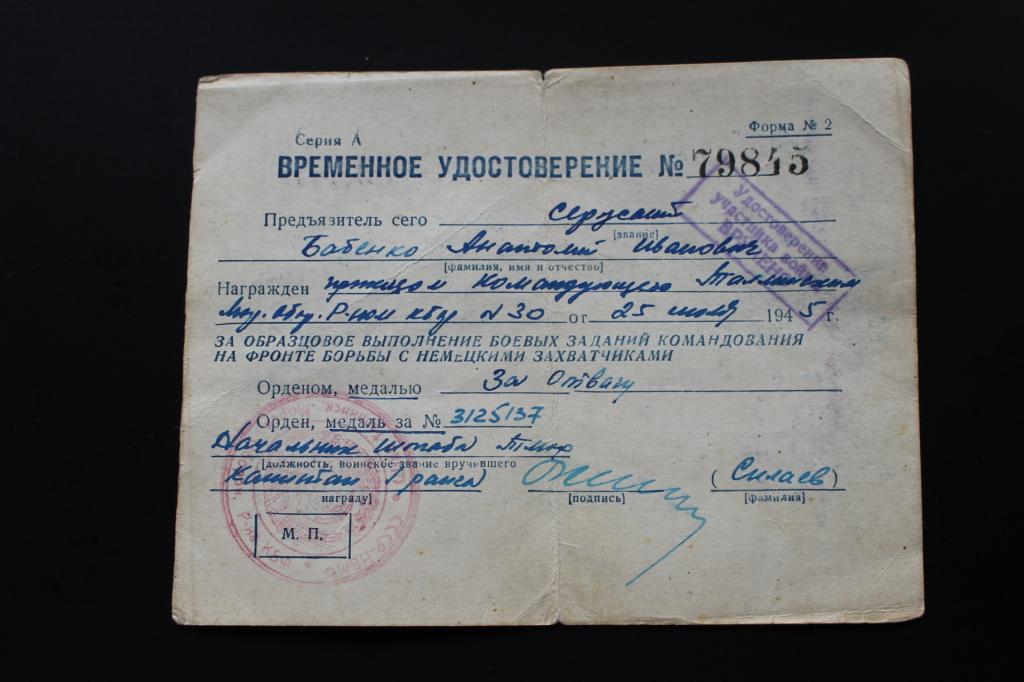 Серия А
Форма № 2
ВРЕМЕННОЕ УДОСТОВЕРЕНИЕ № 79845
Удостоверение
участника войны
Предъязитель сего сержант
[звание]
Бабенко Анатолий Иванович
[фамилия, имя и отчество]
Награжден приказом Командующего Таллинским
Мор. Обор. Р-ном КБФ №30 от 25 июля 1945 г.
ЗА ОБРАЗЦОВОЕ ВЫПОЛНЕНИЕ БОЕВЫХ ЗАДАНИЙ КОМАНДОВАНИЯ
НА ФРОНТЕ БОРЬБЫ С НЕМЕЦКИМИ ЗАХВАТЧИКАМИ
Орденом, медалью За Отвагу
Орден, медаль за № 3125137
Начальник штаба ТМОР
[должность, воинское звание вручившего
Капитан 1 ранга (Силаев)
награду] [подпись] [фамилия]
М. П.
СССР-НКВМФ
Р-на КБФ